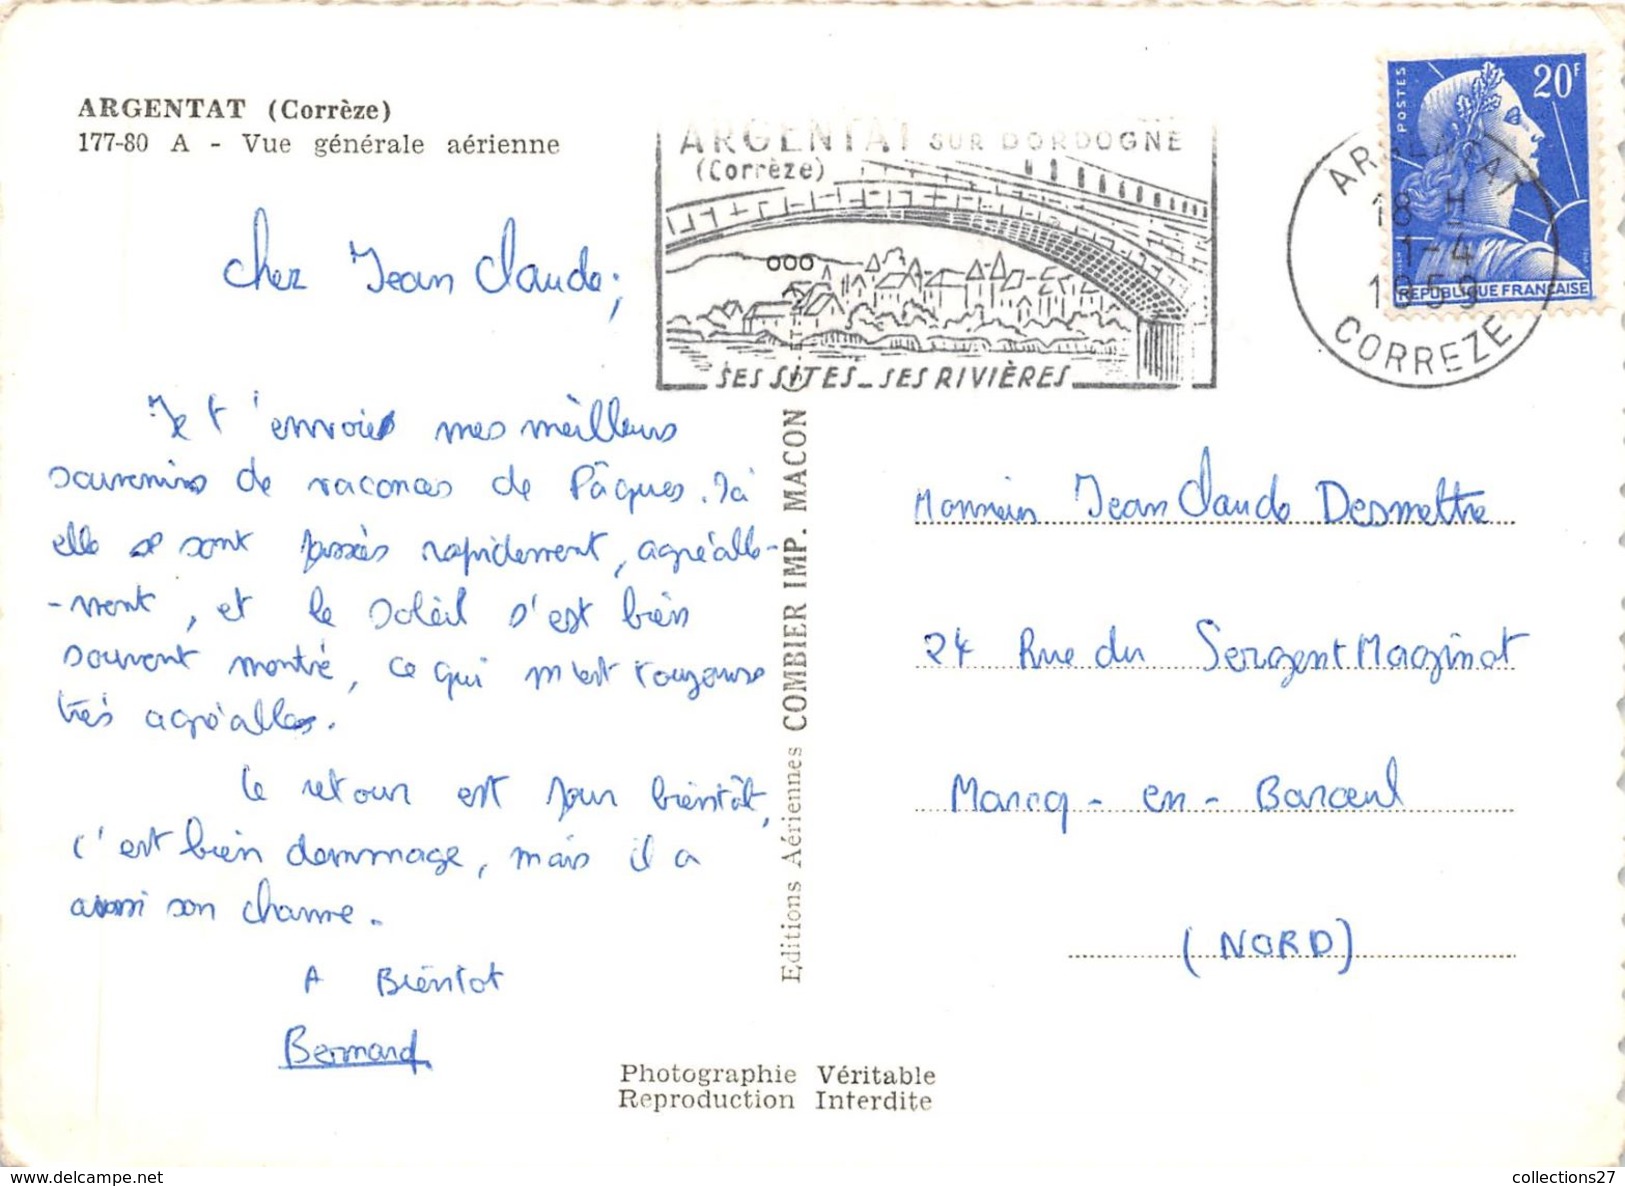 ARGENTAT (Corrèze)
177-80 A - Vue générale aérienne
cher Jean Claude;
Je t'envoies mes meilleurs
souvenirs de vacances de Pâques. Ici
elle se sont passés rapidement, agréable-
-ment, et le soleil s'est bien
souvent montré, ce qui m'est toujours
très agréable.
Le retour est pour bientôt,
c'est bien dommage, mais il a
aussi son charme.
A Bientot
Bernard
ARGENTAT SUR DORDOGNE
(Corrèze)
SES SITES_SES RIVIÈRES
ARGENTAT
18 H
1-4
1959
CORREZE
POSTES
20F
REPUBLIQUE FRANÇAISE
Editions Aériennes COMBIER IMP. MACON
Monsieur Jean Claude Desmettre
24 Rue du Sergent Maginot
Marcq-en-Baroeul
(NORD)
Photographie Véritable
Reproduction Interdite
collections27